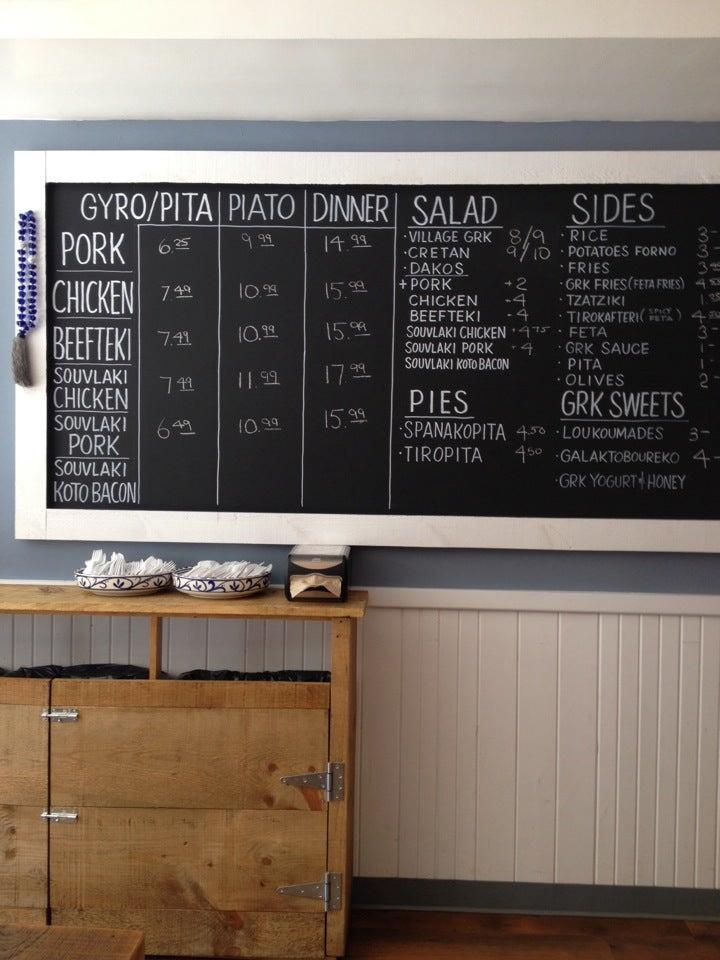 GYRO/PITA PIATO DINNER
PORK 6.25 9.99 14.99
CHICKEN 7.49 10.99 15.99
BEEFTEKI 7.49 10.99 15.99
SOUVLAKI
CHICKEN 7.49 11.99 17.99
SOUVLAKI
PORK 6.49 10.99 15.99
SOUVLAKI
KOTO BACON
SALAD
· VILLAGE GRK 8/9
· CRETAN 9/10
· DAKOS
+ PORK +2
CHICKEN -4
BEEFTEKI -4
SOUVLAKI CHICKEN +4.75
SOUVLAKI PORK +4
SOUVLAKI KOTO BACON
PIES
· SPANAKOPITA 4.50
· TIROPITA 4.50
SIDES
· RICE 3-
· POTATOES FORNO 3-
· FRIES 3
· GRK FRIES (FETA FRIES) 4
· TZATZIKI 1
· TIROKAFTERI (SPICY FETA) 4
· FETA 3-
· GRK SAUCE 1-
· PITA 1-
· OLIVES 2-
GRK SWEETS
· LOUKOUMADES 3-
· GALAKTOBOUREKO 4-
· GRK YOGURT & HONEY